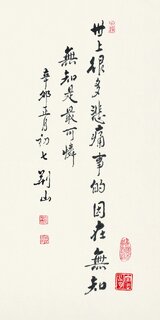 世上很多悲痛事的因在無知
無知是最可憐
辛卯正月初七 荊山